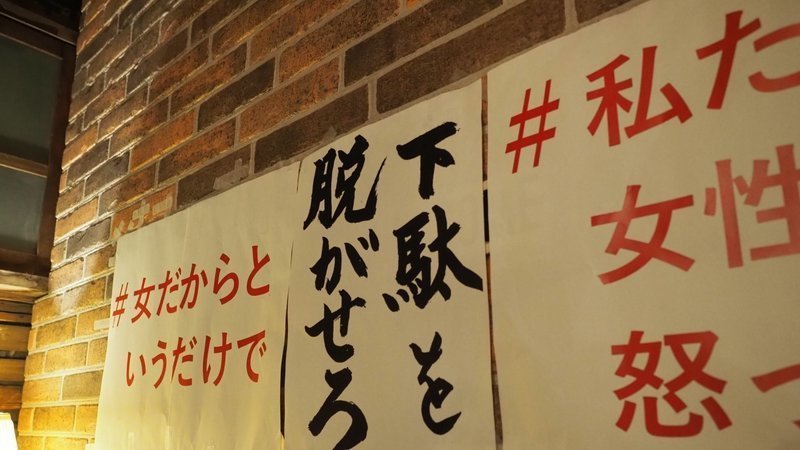 #女だからと
いうだけで
下駄を
脱がせろ
#私た
女性
怒っ